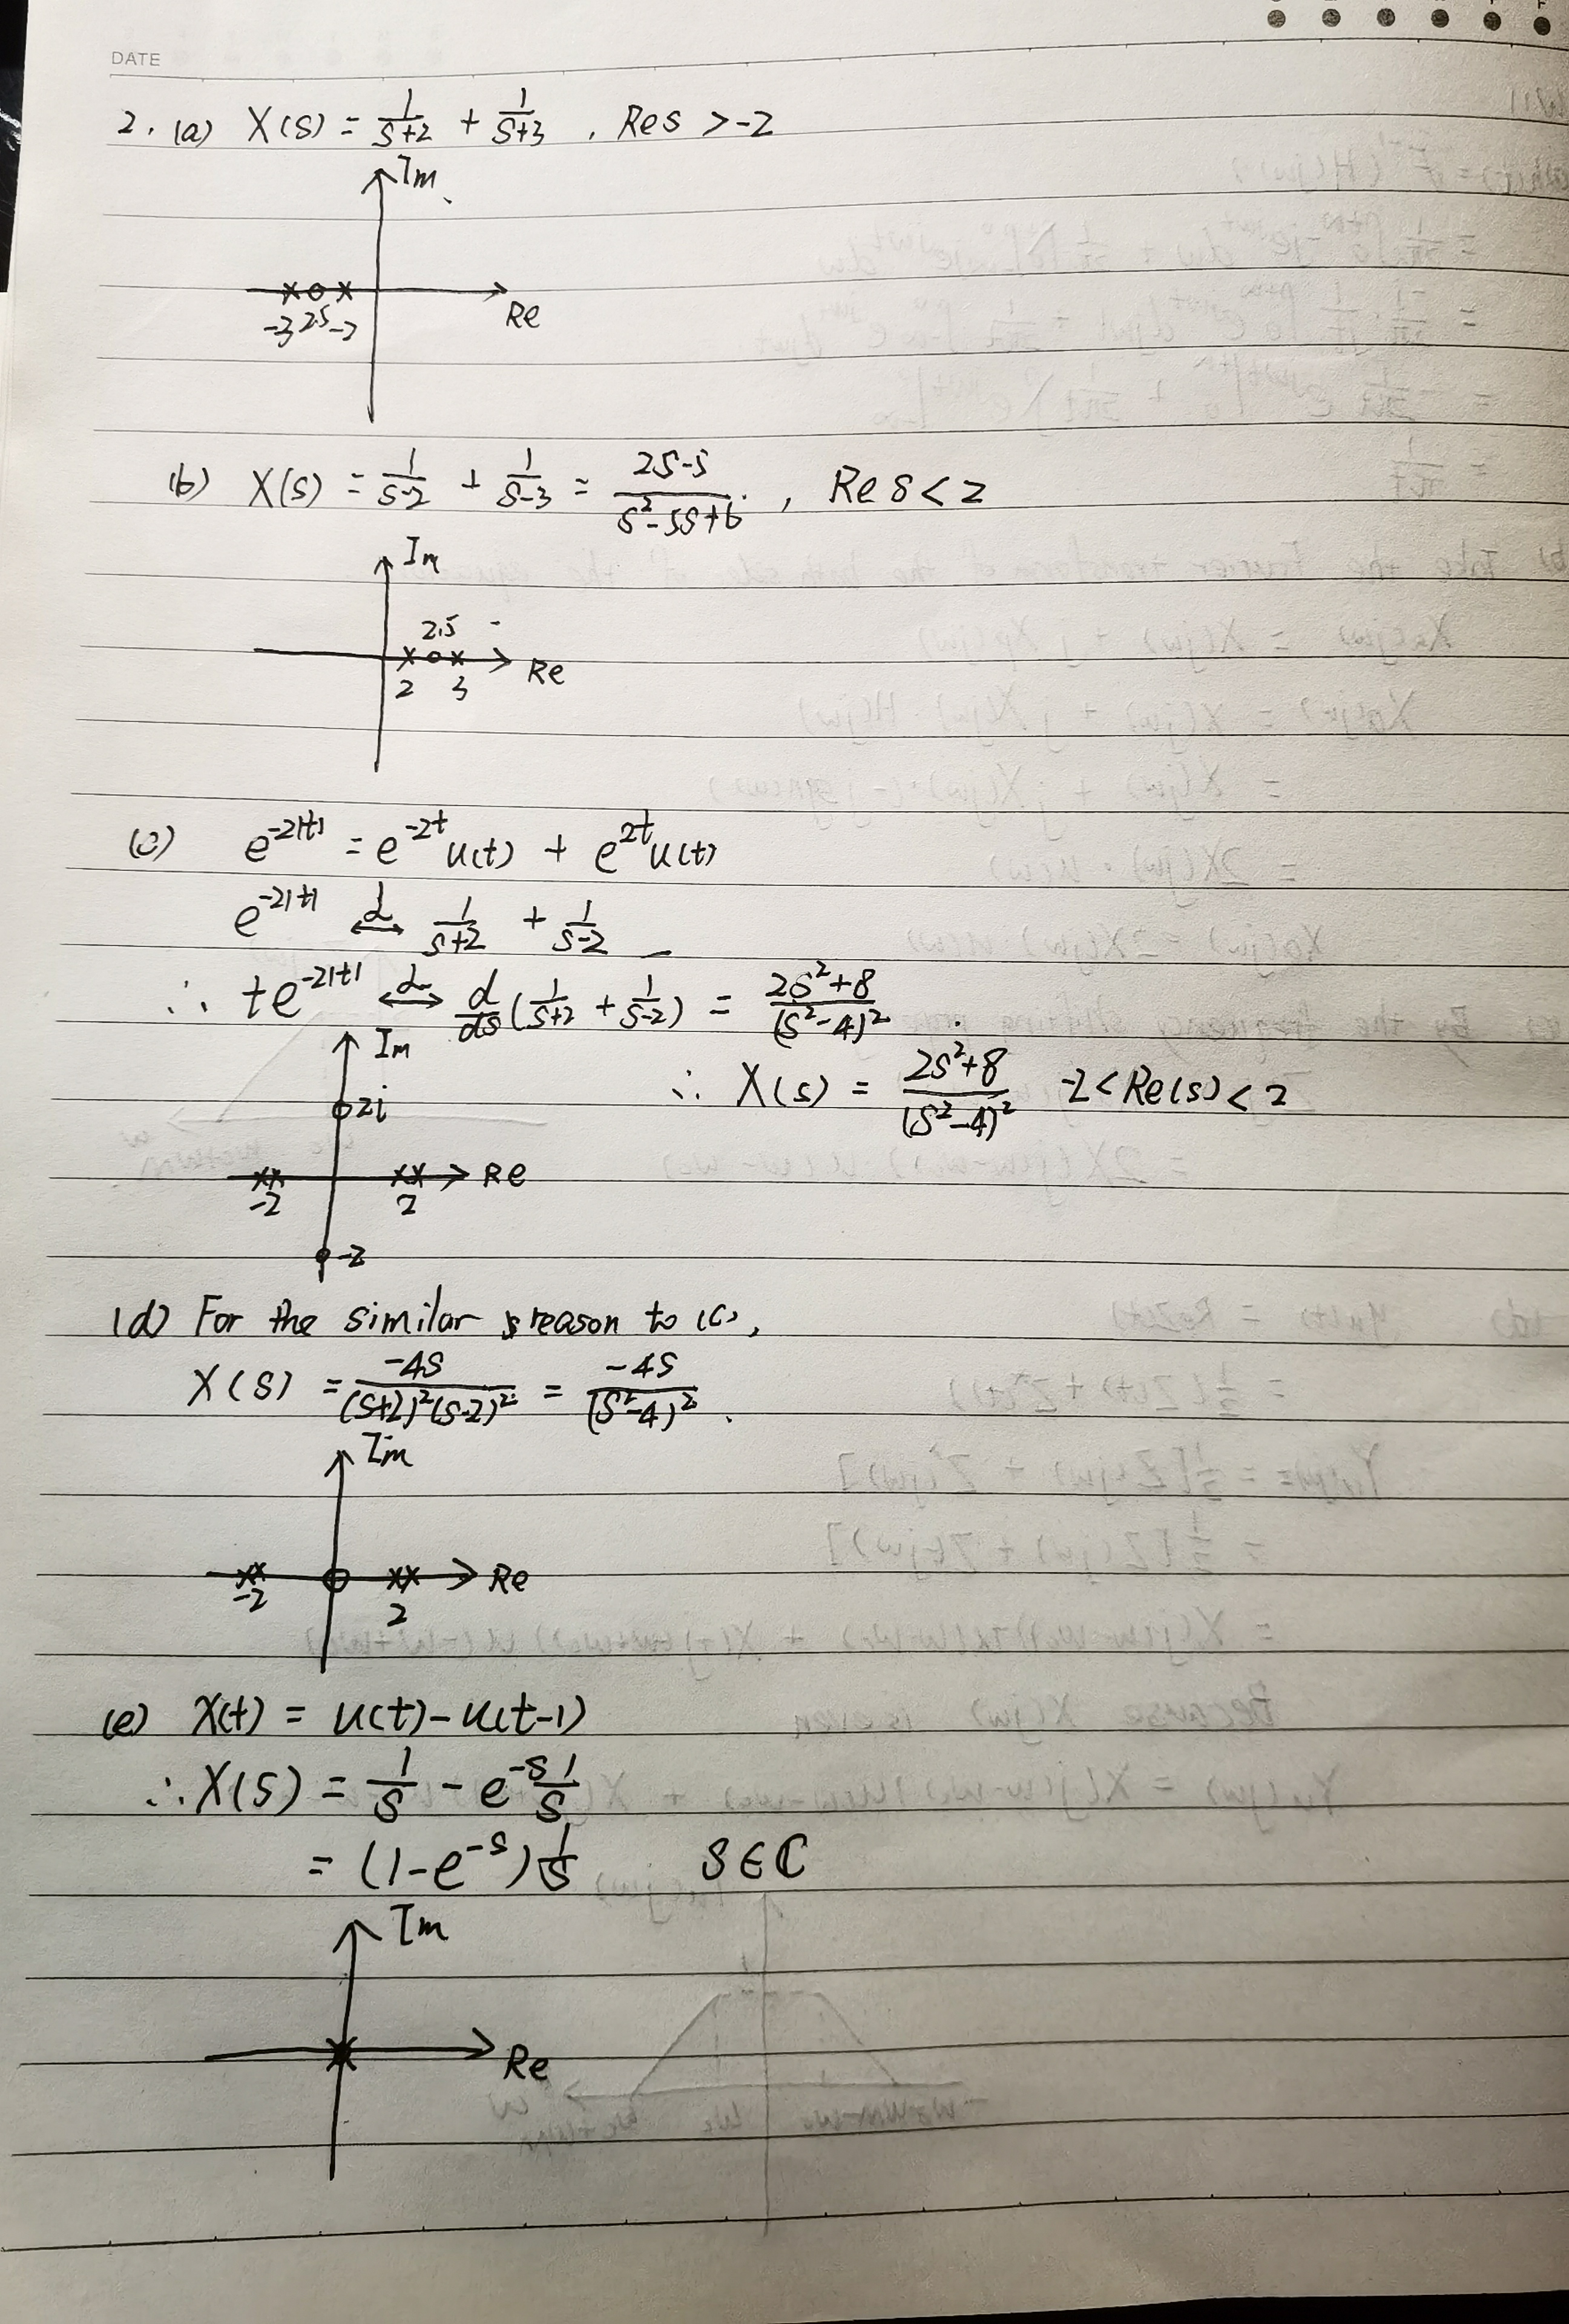 DATE
2. (a) X(s) = 1/(s+2) + 1/(s+3) , Re s > -2
Im
-3 2.5 -2
Re
(b) X(s) = 1/(s-2) + 1/(s-3) = (2s-5)/(s²-5s+6) , Re s < 2
Im
2.5
2 3
Re
(c) e^{-2|t|} = e^{-2t} u(t) + e^{2t} u(t)
e^{-2|t|} ⟷^{L} 1/(s+2) + 1/(s-2)
∴ te^{-2|t|} ⟷^{L} d/ds (1/(s+2) + 1/(s-2)) = (2s²+8)/(s²-4)²
∴ X(s) = (2s²+8)/(s²-4)² -2 < Re(s) < 2
Im
2i
Re
-2 2
-2
(d) For the similar reason to (c),
X(s) = -4s/((s+2)²(s-2)²) = -4s/(s²-4)² .
Im
Re
-2 2
(e) X(t) = u(t) - u(t-1)
∴ X(s) = 1/s - e^{-s} 1/s
= (1-e^{-s}) 1/s s ∈ ℂ
Im
Re